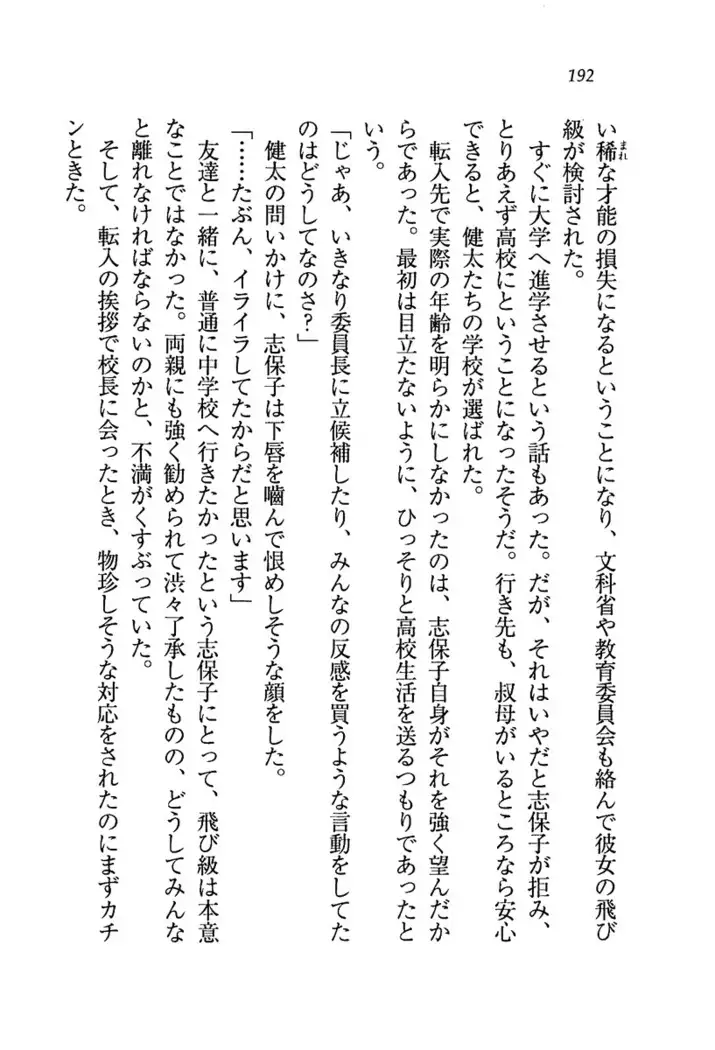 192
い稀な才能の損失になるということになり、文科省や教育委員会も絡んで彼女の飛び
まれ
級が検討された。
すぐに大学へ進学させるという話もあった。だが、それはいやだと志保子が拒み、
とりあえず高校にということになったそうだ。行き先も、叔母がいるところなら安心
できると、健太たちの学校が選ばれた。
転入先で実際の年齢を明らかにしなかったのは、志保子自身がそれを強く望んだか
らであった。最初は目立たないように、ひっそりと高校生活を送るつもりであったと
いう。
「じゃあ、いきなり委員長に立候補したり、みんなの反感を買うような言動をしてた
のはどうしてなのさ?」
健太の問いかけに、志保子は下唇を嚙んで恨めしそうな顔をした。
「……たぶん、イライラしてたからだと思います」
友達と一緒に、普通に中学校へ行きたかったという志保子にとって、飛び級は本意
なことではなかった。両親にも強く勧められて渋々了承したものの、どうしてみんな
と離れなければならないのかと、不満がくすぶっていた。
そして、転入の挨拶で校長に会ったとき、物珍しそうな対応をされたのにまずカチ
ンときた。